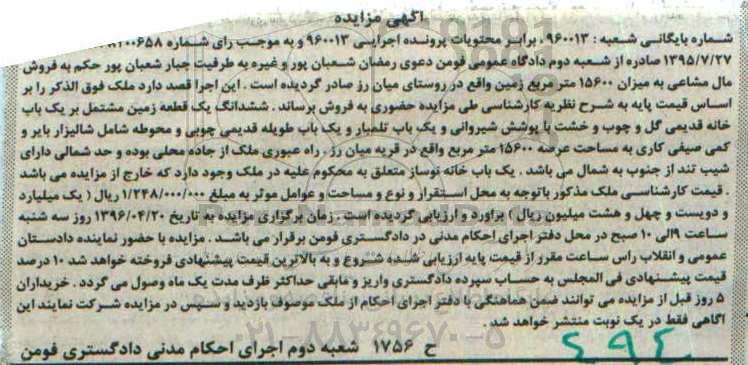 آگهی مزایده
شماره بایگانی شعبه : ۹۶۰۰۱۳، برابر محتویات پرونده اجرایی ۹۶۰۰۱۳ و به موجب رای شماره
۱۳۹۵/۷/۲۷ صادره از شعبه دوم دادگاه عمومی فومن دعوی رمضان شعبان پور و غیره به طرفیت جبار شعبان پور حکم به فروش
مال مشاعی به میزان ۱۵۶۰۰ متر مربع زمین واقع در روستای میان رز صادر گردیده است . این اجرا قصد دارد ملک فوق الذکر را بر
اساس قیمت پایه به شرح نظریه کارشناسی طی مزایده حضوری به فروش برساند . ششدانگ یک قطعه زمین مشتمل بر یک باب
خانه قدیمی گل و چوب و خشت با پوشش شیروانی و یک باب تلمبار و یک باب طویله قدیمی چوبی و محوطه شامل شالیزار بایر و
کمی صیفی کاری به مساحت عرصه ۱۵۶۰۰ متر مربع واقع در قریه میان رز . راه عبوری ملک از جاده محلی بوده و حد شمالی دارای
شیب تند از جنوب به شمال می باشد . یک باب خانه نوساز متعلق به محکوم علیه در ملک وجود دارد که خارج از مزایده می باشد
. قیمت کارشناسی ملک مذکور باتوجه به محل استقرار و نوع و مساحت و عوامل موثر به مبلغ ۱/۲۴۸/۰۰۰/۰۰۰ ریال ( یک میلیارد
و دویست و چهل و هشت میلیون ریال ) براورد و ارزیابی گردیده است . زمان برگزاری مزایده به تاریخ ۱۳۹۶/۰۴/۲۰ روز سه شنبه
ساعت ۹الی ۱۰ صبح در محل دفتر اجرای احکام مدنی در دادگستری فومن برقرار می باشد . مزایده با حضور نماینده دادستان
عمومی و انقلاب راس ساعت مقرر از قیمت پایه ارزیابی شده شروع و به بالاترین قیمت پیشنهادی فروخته خواهد شد ۱۰ درصد
قیمت پیشنهادی فی المجلس به حساب سپرده دادگستری واریز و مابقی حداکثر ظرف مدت یک ماه وصول می گردد . خریداران
۵ روز قبل از مزایده می توانند ضمن هماهنگی با دفتر اجرای احکام از ملک موصوف بازدید و سپس در مزایده شرکت نمایند این
آگاهی فقط در یک نوبت منتشر خواهد شد .
ح ۱۷۵۶ شعبه دوم اجرای احکام مدنی دادگستری فومن
۰۲۱-۸۸۳۴۹۶۷۰-۵